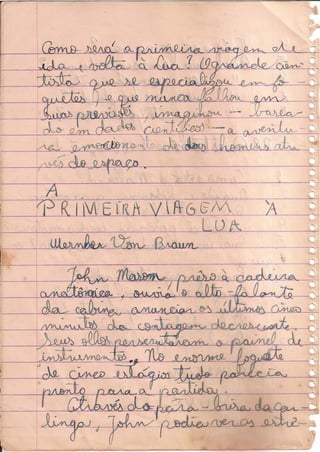 Como será a primeira viagem de
ida e volta à Lua? O grande cien-
tista que se especializou em fo-
guetes, e que nunca falhou em
suas previsões, imaginou — basea-
do em dados científicos — a aventu-
ra emocionante de dois homens atra-
vés do espaço.
A
PRIMEIRA VIAGEM À
LUA
Wernher Von Braun
John Mason, prêso à cadeira
anatômica, ouvia o alto-falante
da cabina, anunciar os últimos cinco
minutos da contagem decrescente.
Seus olhos perscrutaram o painel de
instrumentos. No enorme foguete
de cinco estágios tudo parecia
pronto para a partida.
Através do pára-brisa da car-
linga, John podia ver as estrê-